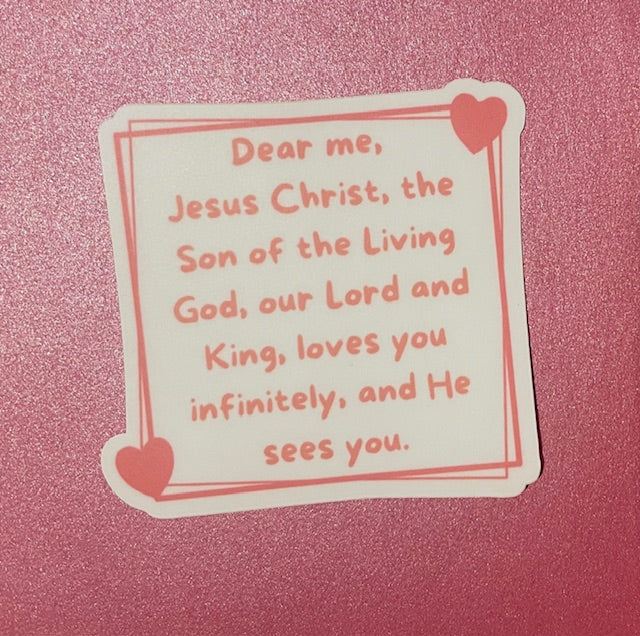 Dear me,
Jesus Christ, the
Son of the Living
God, our Lord and
King, loves you
infinitely, and He
sees you.